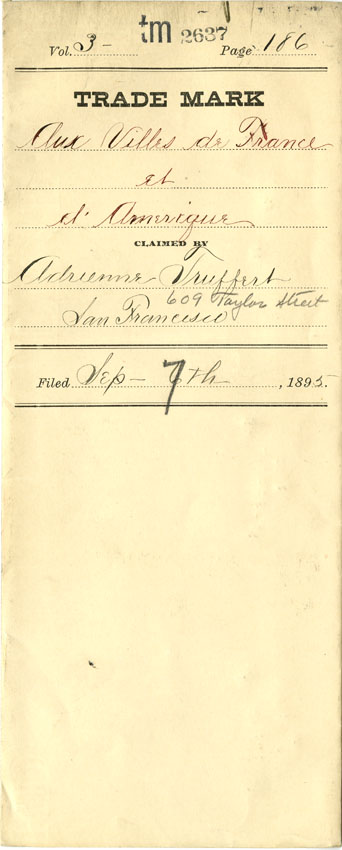 tm 2637
Vol. 3- Page 186
TRADE MARK
Aux Villes de France
et
d'Amerique
CLAIMED BY
Adrienne Truffert
609 Taylor Street
San Francisco
Filed Sep- 7th, 1895.